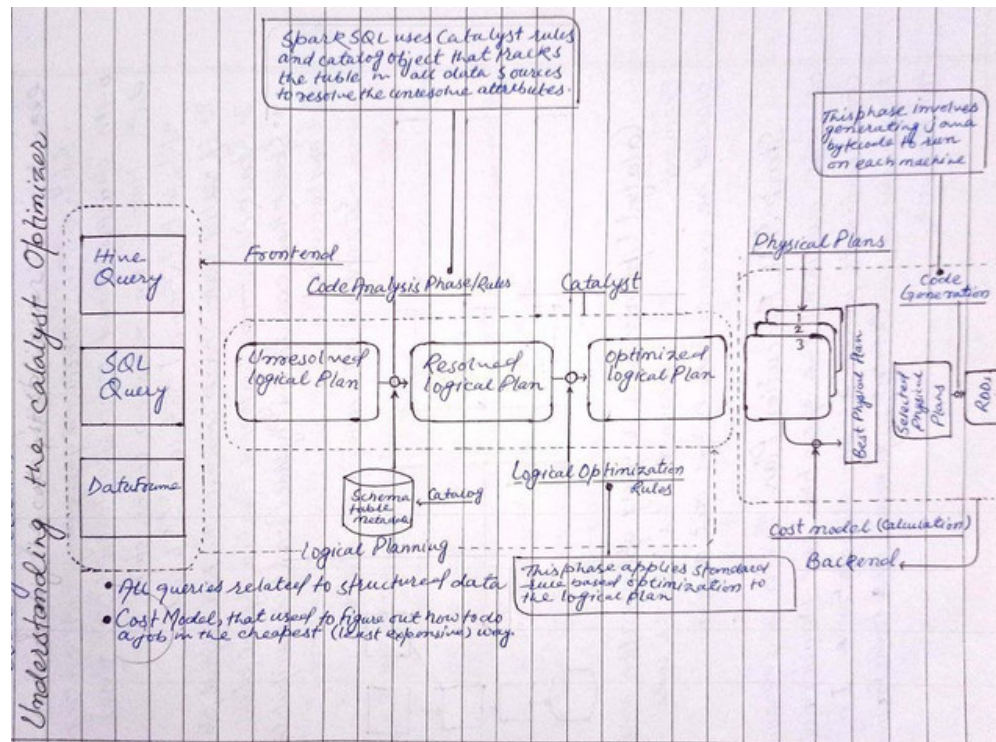 Understanding the Catalyst Optimizer
SparkSQL uses Catalyst rules
and catalog object that tracks
the table in all data sources
to resolve the unresolve attributes.
This phase involves
generating java
bytecode to run
on each machine
Hive
Query
SQL
Query
DataFrame
Frontend
Code Analysis Phase/Rules
Catalyst
Physical Plans
Code
Generation
Unresolved
logical Plan
Resolved
logical Plan
Optimized
logical Plan
2
3
Best Physical Plan
Selected
Physical
Plans
RDDs
Schema
table
metadata
Catalog
Logical Optimization
Rules
Logical Planning
Cost model (Calculation)
Backend
This phase applies standard
rule based optimization to
the logical plan
• All queries related to structured data
• Cost Model, that used to figure out how to do
a job in the cheapest (least expensive) way.